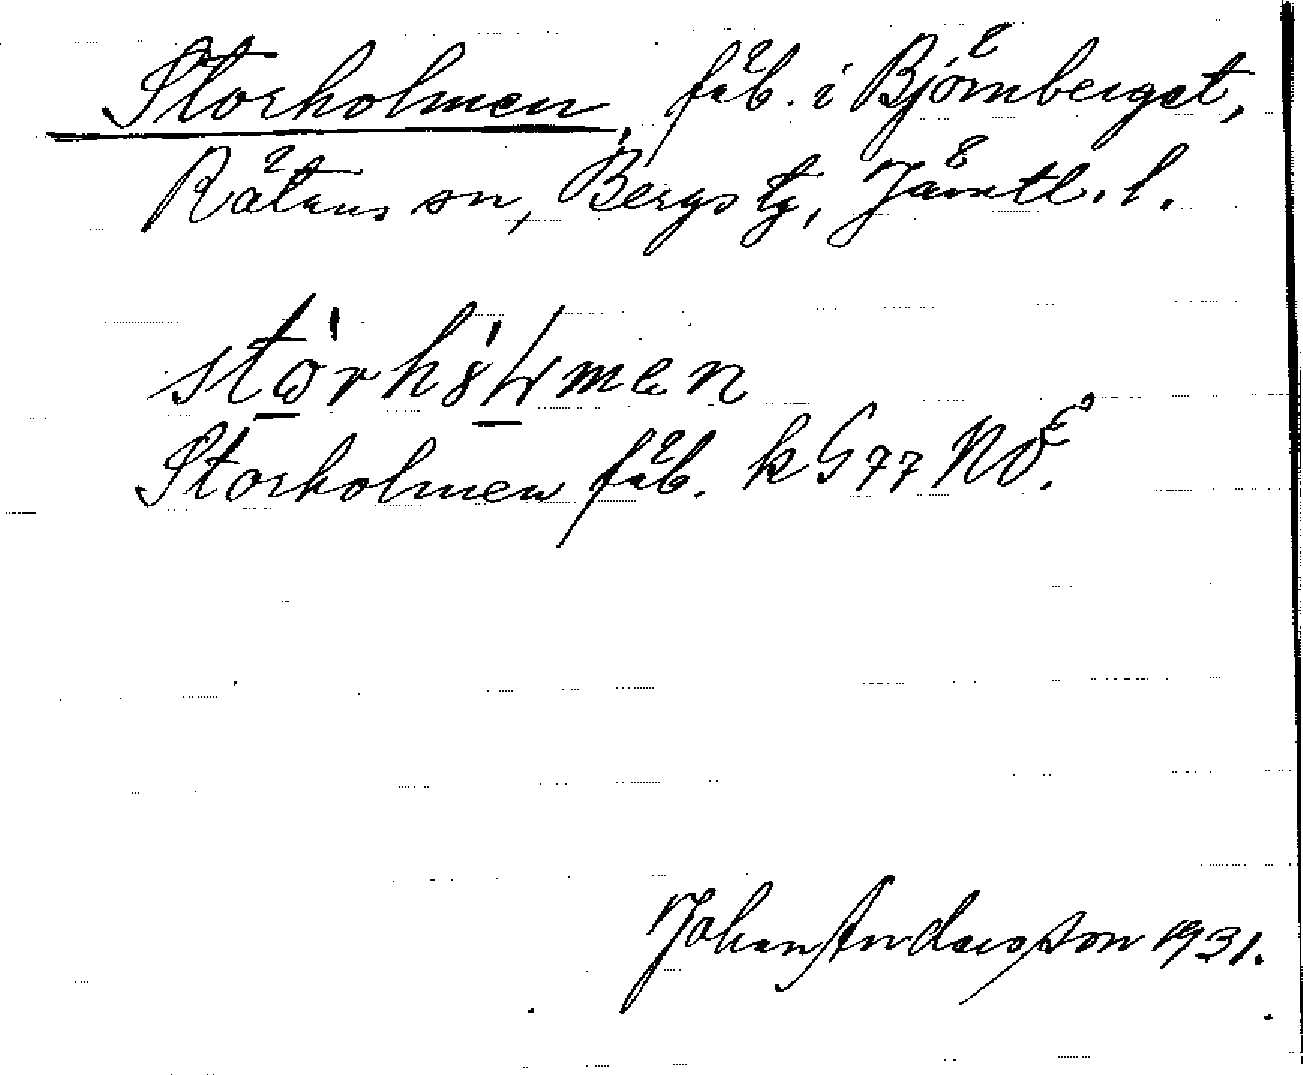 Storholmen, fäb. i Björnberget,
Rätans sn, Bergs tg, Jämtl. l.
Storholmen fäb. k G 77 NÖ.
Johan Andersson 1931.